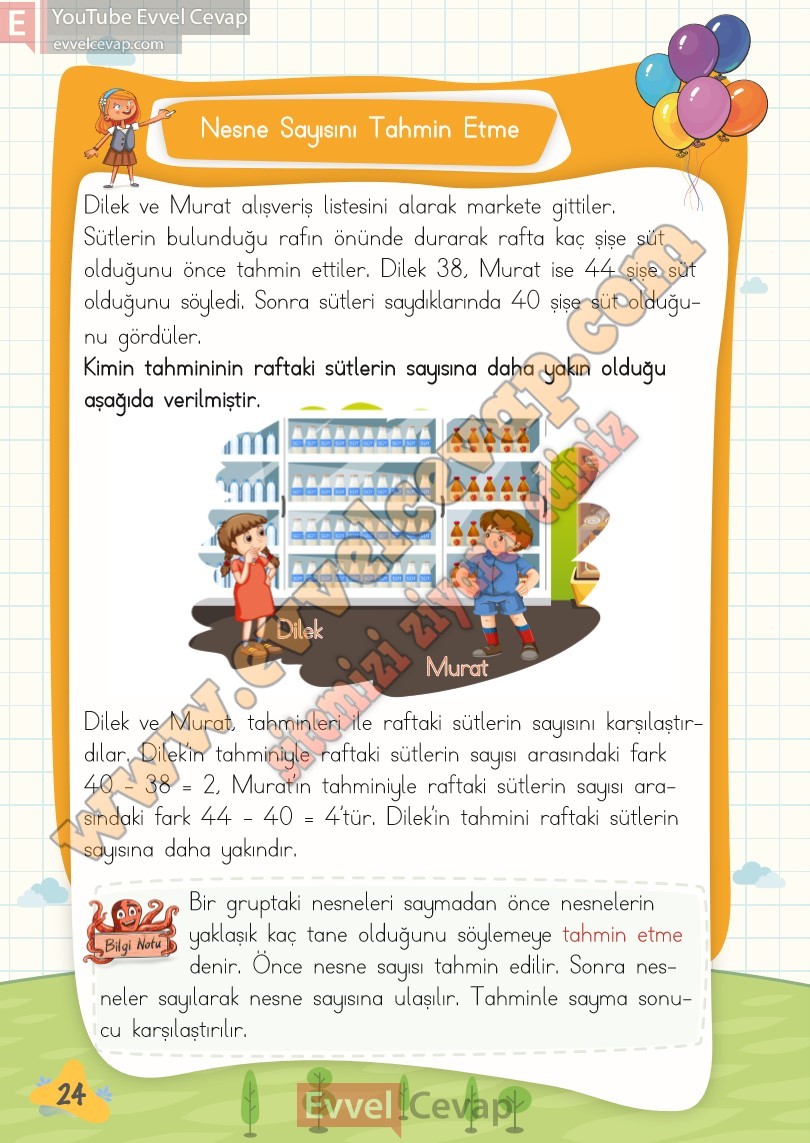 YouTube Evvel Cevap
E
evvelcevap.com
Nesne Sayısını Tahmin Etme
Dilek ve Murat alışveriş listesini alarak markete gittiler.
Sütlerin bulunduğu rafın önünde durarak rafta kaç şişe süt
olduğunu önce tahmin ettiler. Dilek 38, Murat ise 44 şişe süt
olduğunu söyledi. Sonra sütleri saydıklarında 40 şişe süt olduğu-
nu gördüler.
Kimin tahmininin raftaki sütlerin sayısına daha yakın olduğu
aşağıda verilmiştir.
Dilek
Murat
www.evvelcevap.com
sitemizi ziyaret ediniz
Dilek ve Murat, tahminleri ile raftaki sütlerin sayısını karşılaştır-
dılar. Dilek'in tahminiyle raftaki sütlerin sayısı arasındaki fark
40 - 38 = 2, Murat'ın tahminiyle raftaki sütlerin sayısı ara-
sındaki fark 44 - 40 = 4'tür. Dilek'in tahmini raftaki sütlerin
sayısına daha yakındır.
Bilgi Notu
Bir gruptaki nesneleri saymadan önce nesnelerin
yaklaşık kaç tane olduğunu söylemeye tahmin etme
denir. Önce nesne sayısı tahmin edilir. Sonra nes-
neler sayılarak nesne sayısına ulaşılır. Tahminle sayma sonu-
cu karşılaştırılır.
24
Evvel Cevap